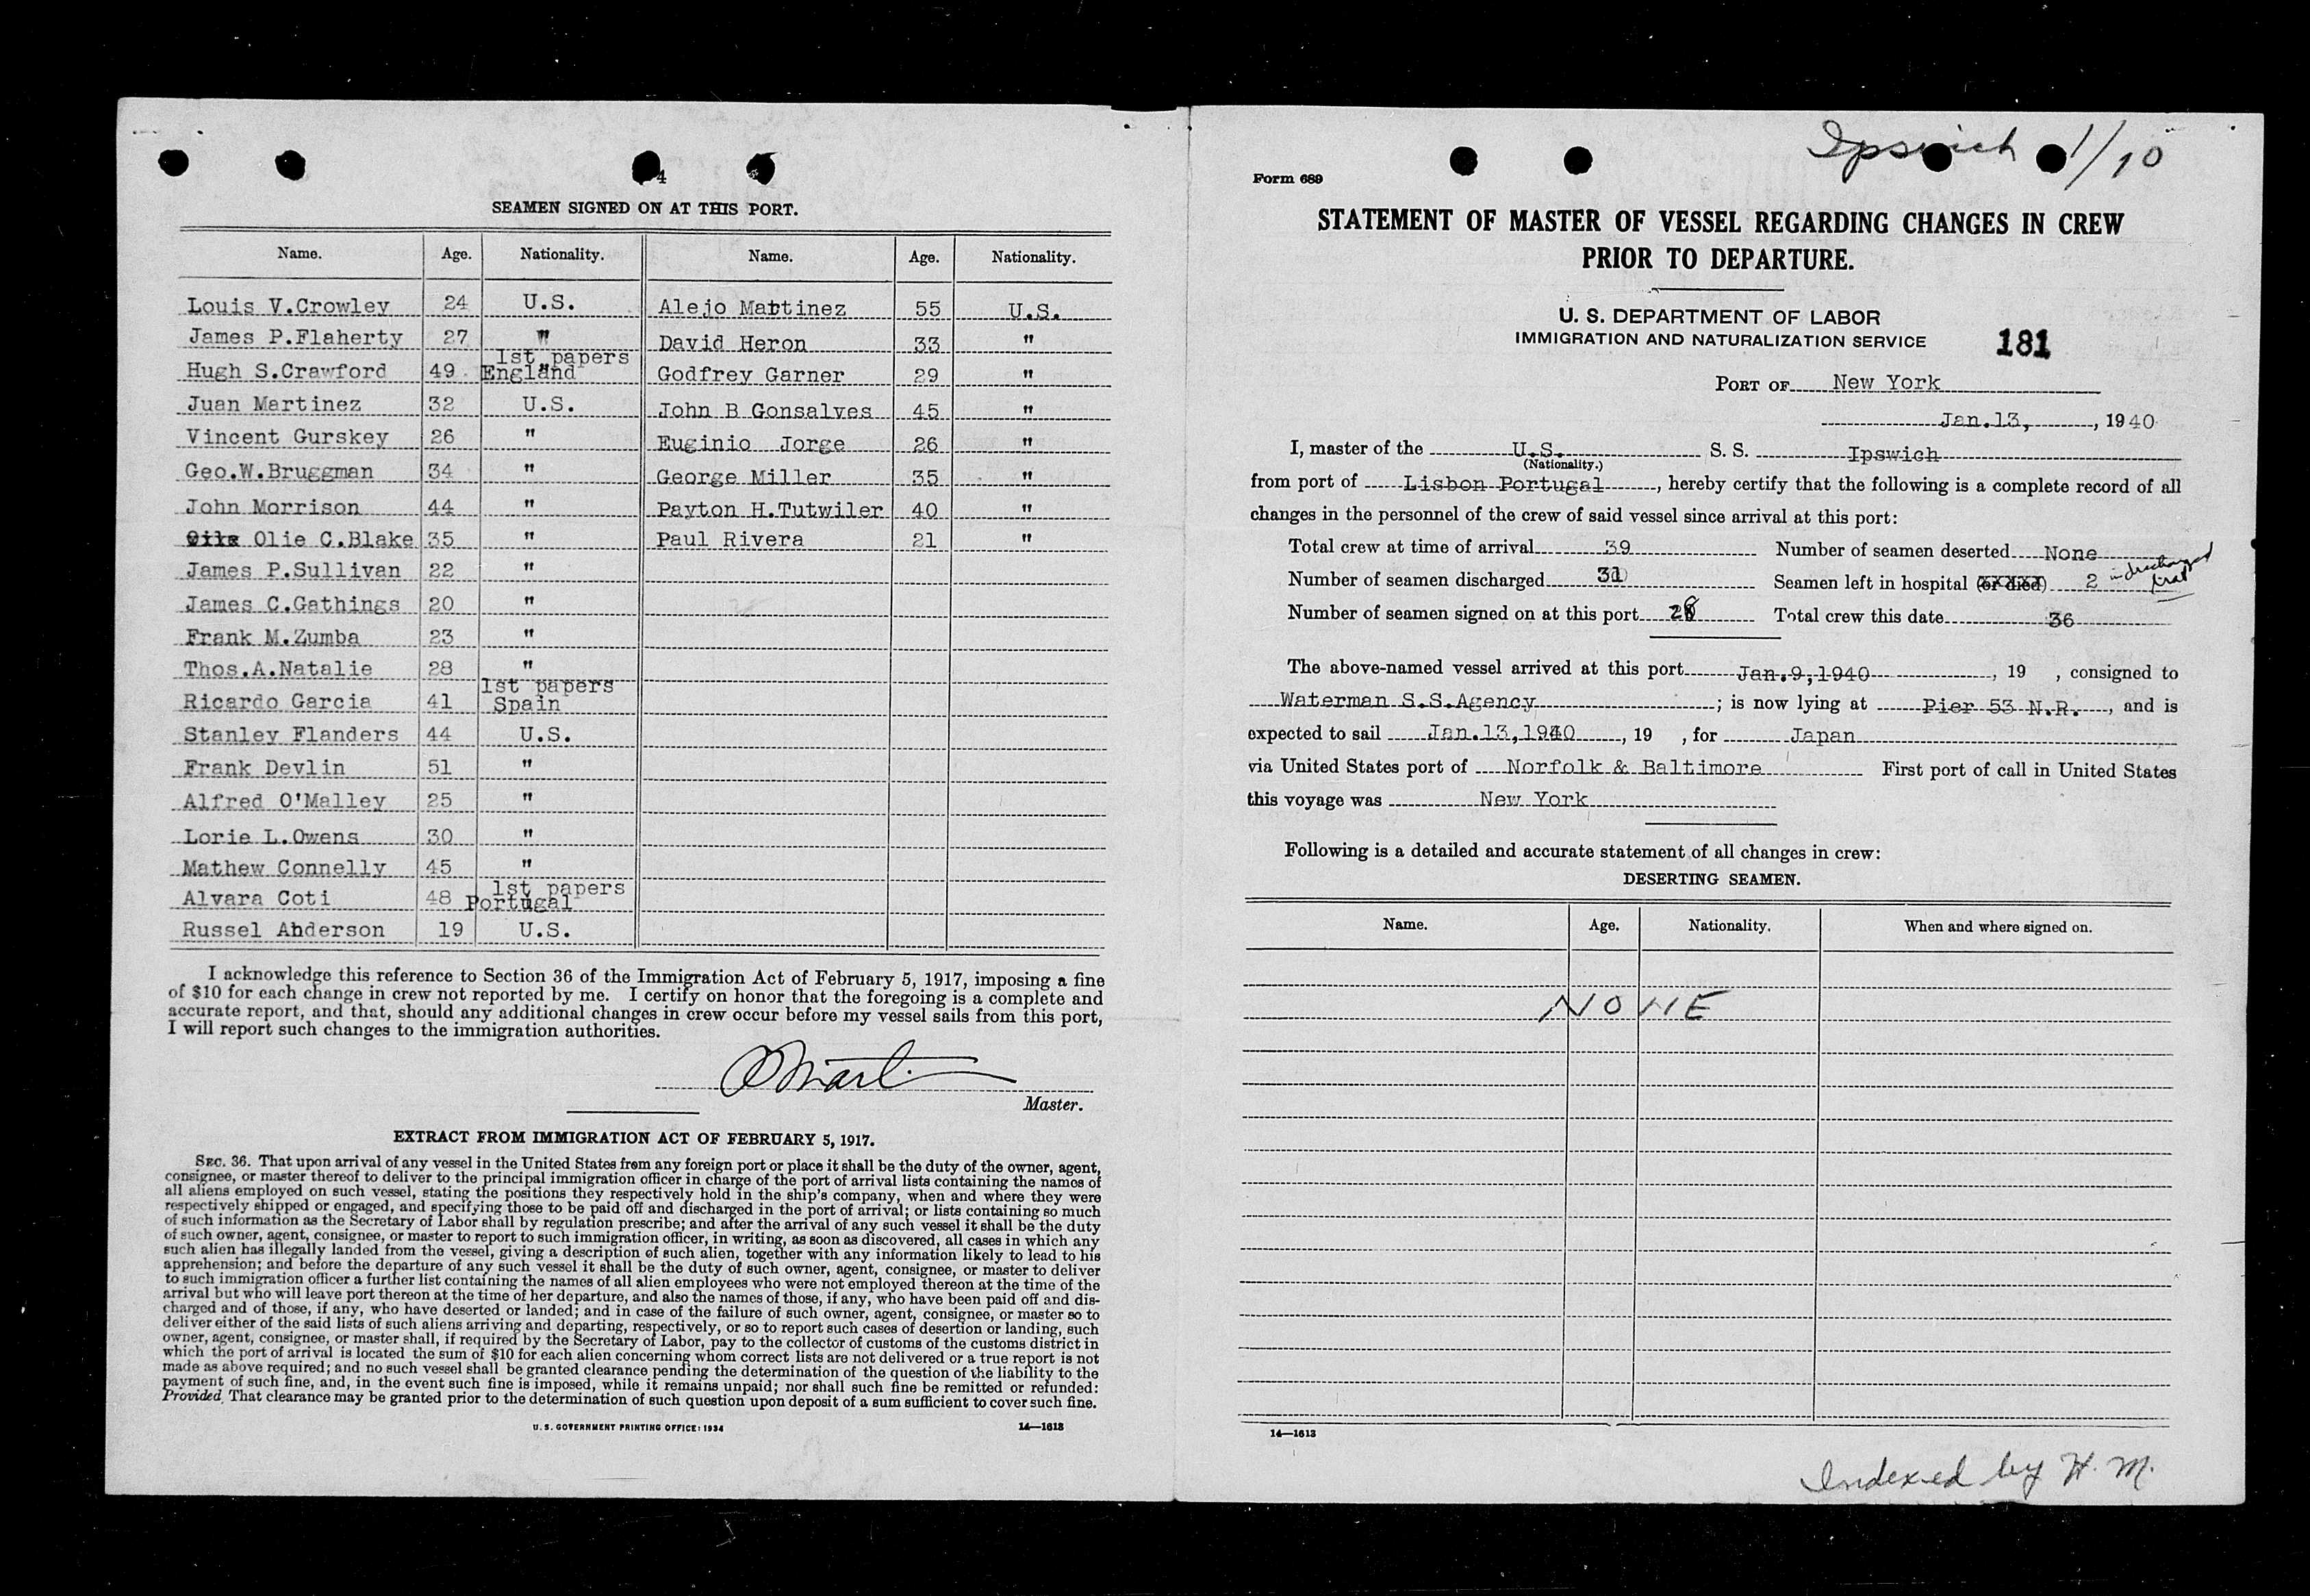 4
SEAMEN SIGNED ON AT THIS PORT.
Name. Age. Nationality. Name. Age. Nationality.
Louis V.Crowley 24 U.S. Alejo Martinez 55 U.S.
James P.Flaherty 27 " David Heron 33 "
Hugh S.Crawford 49 1st papers England Godfrey Garner 29 "
Juan Martinez 32 U.S. John B Gonsalves 45 "
Vincent Gurskey 26 " Euginio Jorge 26 "
Geo.W.Bruggman 34 " George Miller 35 "
John Morrison 44 " Payton H.Tutwiler 40 "
Olie C.Blake 35 " Paul Rivera 21 "
James P.Sullivan 22 "
James C.Gathings 20 "
Frank M.Zumba 23 "
Thos.A.Natalie 28 "
Ricardo Garcia 41 1st papers Spain
Stanley Flanders 44 U.S.
Frank Devlin 51 "
Alfred O'Malley 25 "
Lorie L.Owens 30 "
Mathew Connelly 45 "
Alvara Coti 48 1st papers Portugal
Russel Anderson 19 U.S.
I acknowledge this reference to Section 36 of the Immigration Act of February 5, 1917, imposing a fine
of $10 for each change in crew not reported by me. I certify on honor that the foregoing is a complete and
accurate report, and that, should any additional changes in crew occur before my vessel sails from this port,
I will report such changes to the immigration authorities.
Master.
EXTRACT FROM IMMIGRATION ACT OF FEBRUARY 5, 1917.
SEC. 36. That upon arrival of any vessel in the United States from any foreign port or place it shall be the duty of the owner, agent,
consignee, or master thereof to deliver to the principal immigration officer in charge of the port of arrival lists containing the names of
all aliens employed on such vessel, stating the positions they respectively hold in the ship's company, when and where they were
respectively shipped or engaged, and specifying those to be paid off and discharged in the port of arrival; or lists containing so much
of such information as the Secretary of Labor shall by regulation prescribe; and after the arrival of any such vessel it shall be the duty
of such owner, agent, consignee, or master to report to such immigration officer, in writing, as soon as discovered, all cases in which any
such alien has illegally landed from the vessel, giving a description of such alien, together with any information likely to lead to his
apprehension; and before the departure of any such vessel it shall be the duty of such owner, agent, consignee, or master to deliver
to such immigration officer a further list containing the names of all alien employees who were not employed thereon at the time of the
arrival but who will leave port thereon at the time of her departure, and also the names of those, if any, who have been paid off and dis-
charged and of those, if any, who have deserted or landed; and in case of the failure of such owner, agent, consignee, or master so to
deliver either of the said lists of such aliens arriving and departing, respectively, or so to report such cases of desertion or landing, such
owner, agent, consignee, or master shall, if required by the Secretary of Labor, pay to the collector of customs of the customs district in
which the port of arrival is located the sum of $10 for each alien concerning whom correct lists are not delivered or a true report is not
made as above required; and no such vessel shall be granted clearance pending the determination of the question of the liability to the
payment of such fine, and, in the event such fine is imposed, while it remains unpaid; nor shall such fine be remitted or refunded:
Provided, That clearance may be granted prior to the determination of such question upon deposit of a sum sufficient to cover such fine.
U. S. GOVERNMENT PRINTING OFFICE: 1934 14—1613
Ipswich 1/10
Form 689
STATEMENT OF MASTER OF VESSEL REGARDING CHANGES IN CREW
PRIOR TO DEPARTURE.
U. S. DEPARTMENT OF LABOR
IMMIGRATION AND NATURALIZATION SERVICE
181
PORT OF New York
Jan.13, , 1940
I, master of the U.S. S. S. Ipswich
(Nationality.)
from port of Lisbon Portugal, hereby certify that the following is a complete record of all
changes in the personnel of the crew of said vessel since arrival at this port:
Total crew at time of arrival 39 Number of seamen deserted None
Number of seamen discharged 31 Seamen left in hospital (or died) 2 in discharged list
Number of seamen signed on at this port 28 Total crew this date 36
The above-named vessel arrived at this port Jan.9,1940 , 19 , consigned to
Waterman S.S.Agency ; is now lying at Pier 53 N.R. , and is
expected to sail Jan.13,1940 , 19 , for Japan
via United States port of Norfolk & Baltimore First port of call in United States
this voyage was New York
Following is a detailed and accurate statement of all changes in crew:
DESERTING SEAMEN.
Name. Age. Nationality. When and where signed on.
NONE
14—1613
Indexed by H. M.